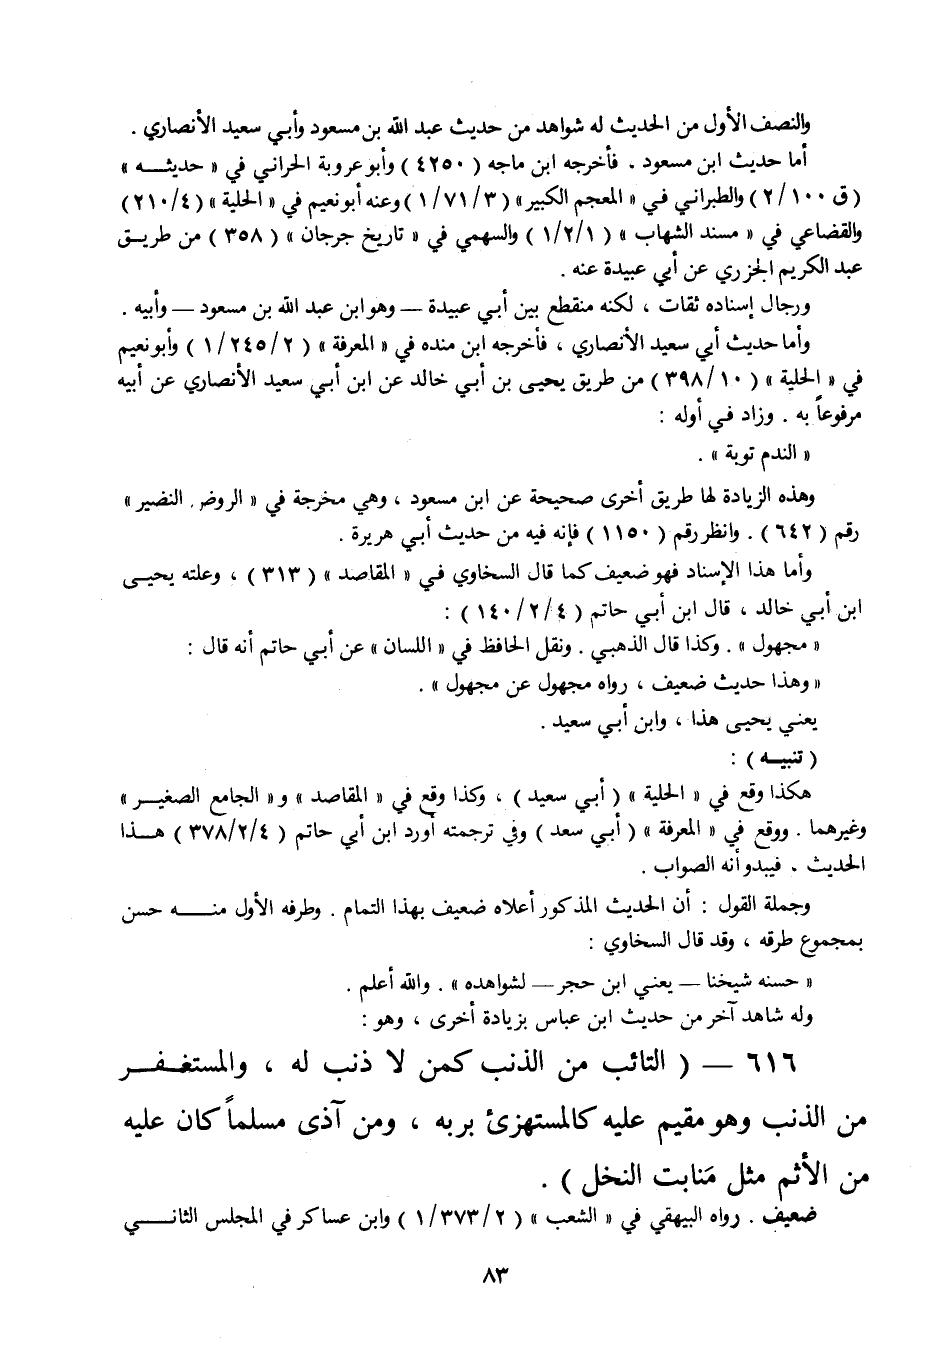 والنصف الأول من الحديث له شواهد من حديث عبد الله بن مسعود وأبي سعيد الأنصاري .
أما حديث ابن مسعود . فأخرجه ابن ماجه ( ٤٢٥٠ ) وأبو عروبة الحراني في « حديثــه »
( ق ١٠٠ /٢ ) والطبراني في « المعجم الكبير» ( ٣ /٧١ /١ ) وعنه أبو نعيم في « الحلية » ( ٤ /٢١٠ )
والقضاعي في « مسند الشهاب » ( ١ /٢ /١ ) والسهمي في « تاريخ جرجان » ( ٣٥٨ ) من طريــق
عبد الكريم الجزري عن أبي عبيدة عنه .
ورجال إسناده ثقات ، لكنه منقطع بين أبي عبيدة — وهو ابن عبد الله بن مسعود — وأبيه .
وأما حديث أبي سعيد الأنصاري ، فأخرجه ابن منده في « المعرفة » ( ٢ /٢٤٥ /١ ) وأبو نعيم
في « الحلية » ( ١٠ /٣٩٨ ) من طريق يحيى بن أبي خالد عن ابن أبي سعيد الأنصاري عن أبيه
مرفوعاً به . وزاد في أوله :
« الندم توبة » .
وهذه الزيادة لها طريق أخرى صحيحة عن ابن مسعود ، وهي مخرجة في « الروض النضير »
رقم ( ٦٤٢ ) . وانظر رقم ( ١١٥٠ ) فإنه فيه من حديث أبي هريرة .
وأما هذا الإسناد فهو ضعيف كما قال السخاوي في « المقاصد » ( ٣١٣ ) ، وعلته يحيــى
ابن أبي خالد ، قال ابن أبي حاتم ( ٤ /٢ /١٤٠ ) :
« مجهول » . وكذا قال الذهبي . ونقل الحافظ في « اللسان » عن أبي حاتم أنه قال :
« وهذا حديث ضعيف ، رواه مجهول عن مجهول » .
يعني يحيى هذا ، وابن أبي سعيد .
( تنبيــه ) :
هكذا وقع في « الحلية » ( أبي سعيد ) ، وكذا وقع في « المقاصد » و « الجامع الصغيــر »
وغيرهما . ووقع في « المعرفة » ( أبي سعد ) وفي ترجمته أورد ابن أبي حاتم ( ٤ /٢ /٣٧٨ ) هــذا
الحديث . فيبدو أنه الصواب .
وجملة القول : أن الحديث المذكور أعلاه ضعيف بهذا التمام . وطرفه الأول منــه حسن
بمجموع طرقه ، وقد قال السخاوي :
« حسنه شيخنا — يعني ابن حجر — لشواهده » . والله أعلم .
وله شاهد آخر من حديث ابن عباس بزيادة أخرى ، وهو :
٦١٦ — ( التائب من الذنب كمن لا ذنب له ، والمستغــفــر
من الذنب وهو مقيم عليه كالمستهزئ بربه ، ومن آذى مسلماً كان عليه
من الأثم مثل مَنابت النخل ) .
ضعيف . رواه البيهقي في « الشعب » ( ٢ /٣٧٣ /١ ) وابن عساكر في المجلس الثانــي
٨٣